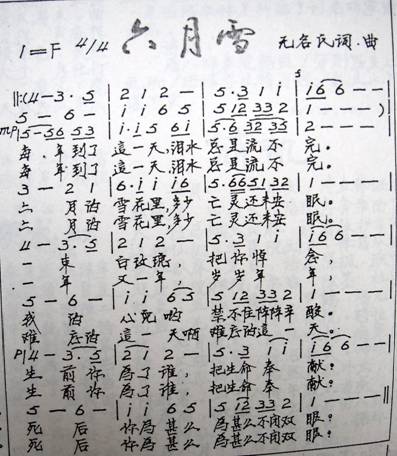 1=F 4/4 六月雪 无名氏词.曲
‖:(4-3·5|212-|5·31i|i66--|
5-6-|ii65|5 12 332|1---)
mp|5-56 53|i·i5 6i|5·6 32 35|2---|
每.年到了 這一天,泪水 总是流不 完。
每.年到了 這一天,泪水 总是流不 完。
3-21|6·ii i6|5·66 51 32|1---|
六 月的 雪花里,多少 亡灵还未安 眠。
六 月的 雪花里,多少 亡灵还未安 眠。
4-3·5|212-|5·31i|i66--|
一 束 白玫瑰, 把你悼 念,
一 年 又一年, 岁岁年 年,
5-6-|ii65|5 12 332|1---|
我 的 心儿哟 禁不住阵阵辛 酸。
难 忘的 這一天啊 难忘的這一 天。
P|4-3·5|212-|5·31i|i66--|
生 前你 為了谁, 把生命奉 献?
生 前你 為了谁, 把生命奉 献?
5-6-|ii65|5 12 332|1---‖
死 后 你為甚么 為甚么不闭双 眼?
死 后 你為甚么 為甚么不闭双 眼?